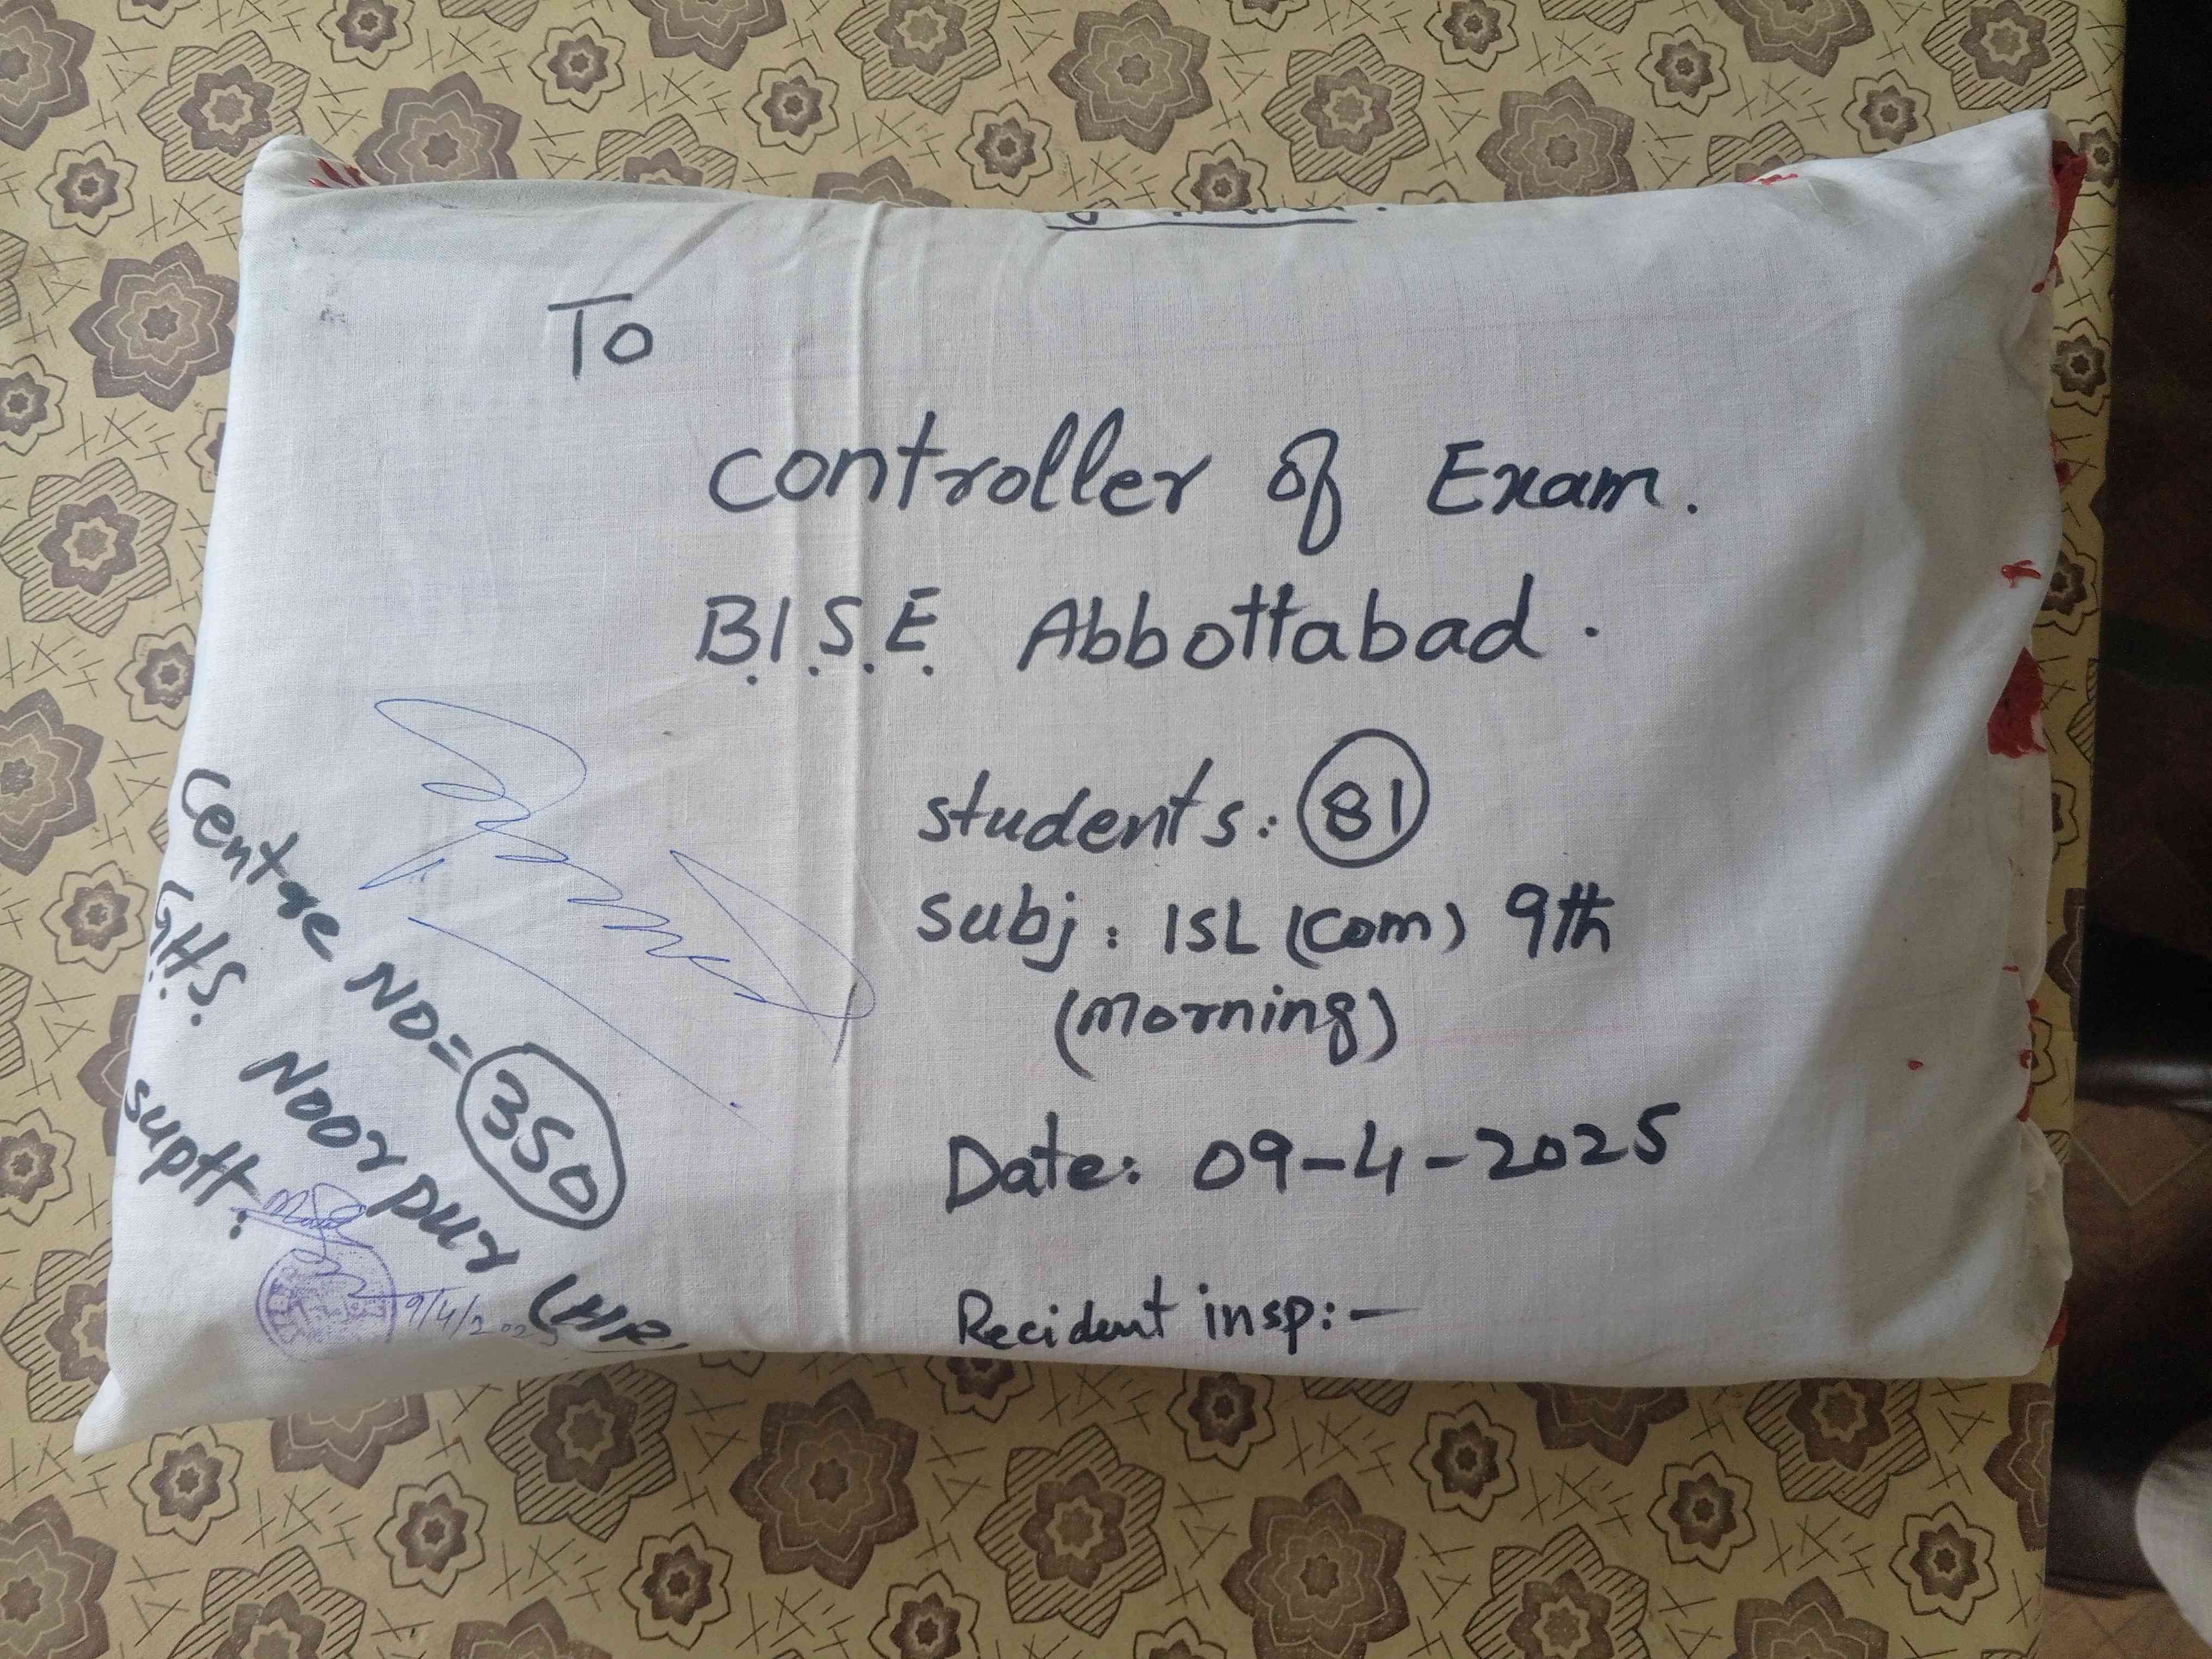 To
Controller of Exam.
B.I.S.E. Abbottabad.
students: 81
Subj: ISL (Com) 9th
(Morning)
Date: 09-4-2025
Recident insp:-
Centre NO= 350
G.H.S. Noor pur (HR)
suptt:
9/4/2025